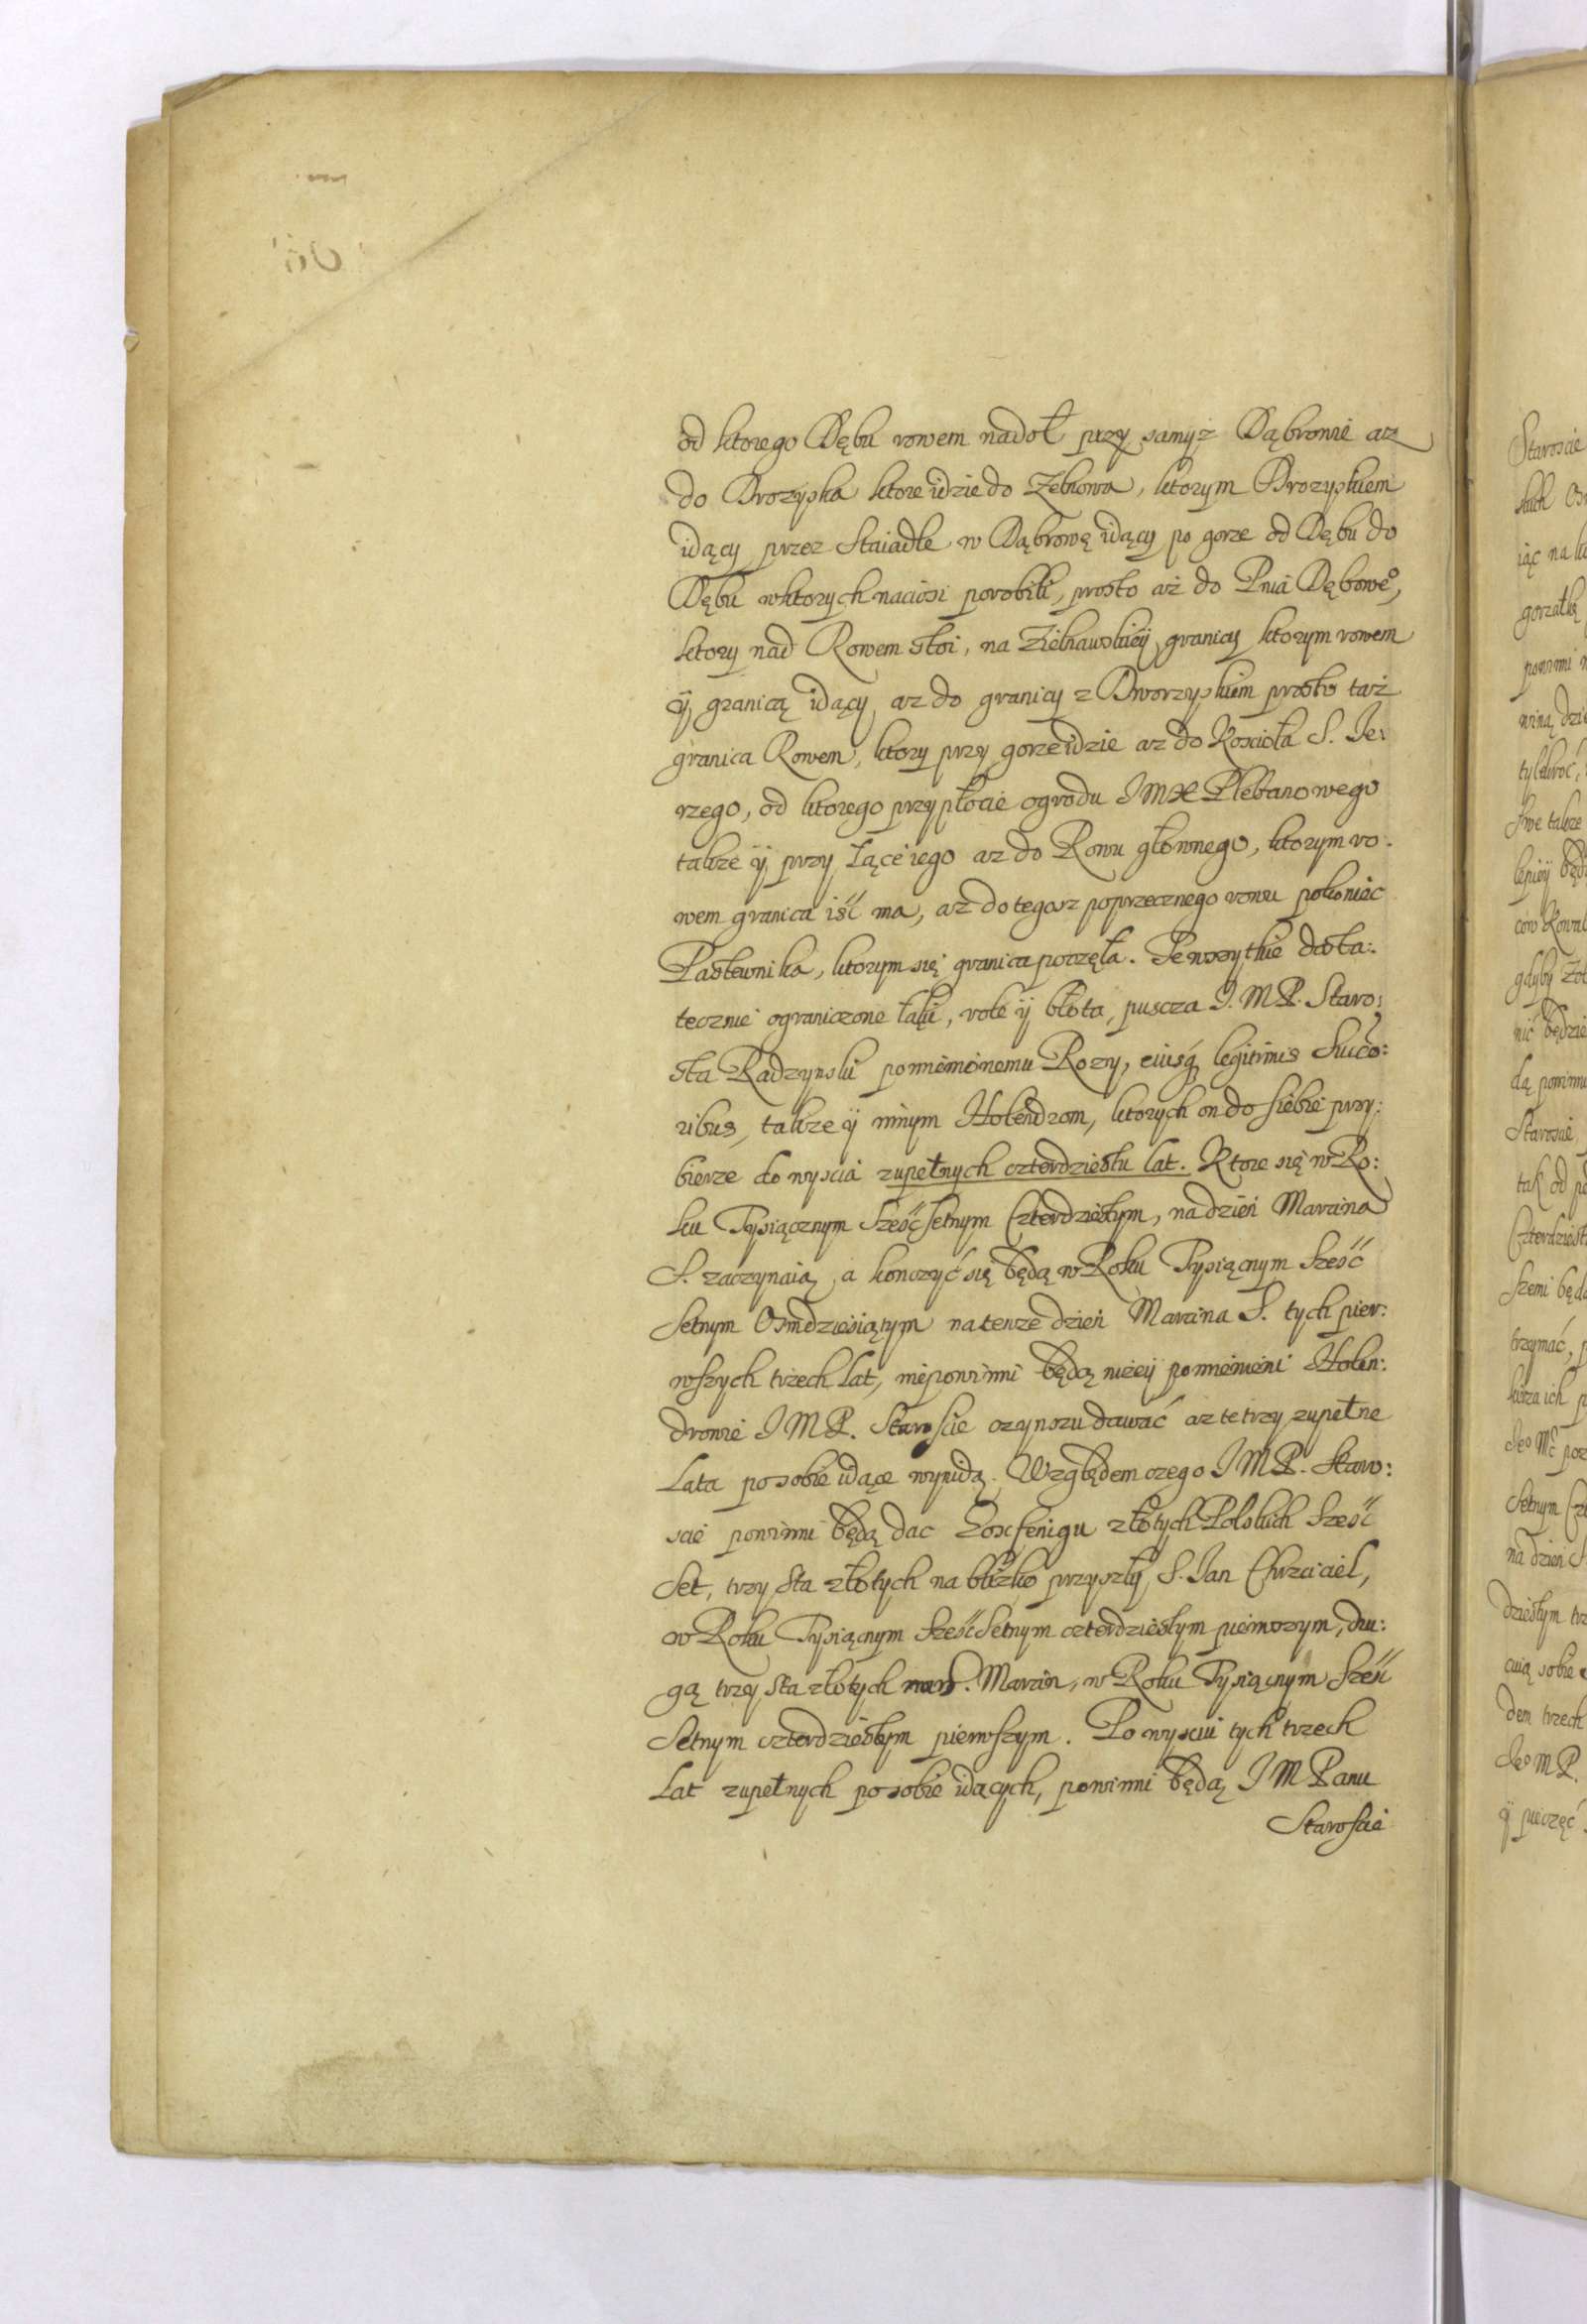 od ktorego Dębu rowem nadoł przy samyż Dąbrowie asz
do Drozyska ktore idzie do Zebrowa, ktorym Drozyskiem
idący przez Staiadle w Dąbrowę idący po gorze od Dębu do
Dębu w ktorych naciosi porobili, prosto aż do Pnia Dęboweº,
ktory nad Rowem stoi, na Zielnawskiey granicy ktorym rowem
ÿ granicą idący asz do granicy z Dworzyskiem prosto taż
granica Rowem, ktory przy gorze idzie asz do Kosciola S. Je:
rzego, od ktorego przy płocie ogrodu JMX Plebanowego
takze ÿ przy Łące iego asz do Rowu głownego, ktorym ro:
wem granica iść ma, aż do tegosz poprzecznego rowu pokoniec
Pastewnika, ktorym się granica poczęła. Te wszytkie dosta:
tecznie ograniczone łąki, role ÿ błota, puscza J.M.P. Staro:
sta Radzynski pomienionemu Rozy, eiusq legitimis Succo:
ribus, takze ÿ innym Holendrom, ktorych on do siebie przy:
bierze do wyscia zupełnych czterdziestu lat. Ktore się w Ro:
ku Tysiącznym Sześćsetnym Czterdziestym, na dzień Marcina
S. zaczynaią, a konczyć się będą w Roku Tysiącnym Sześć
Setnym Osmdziesiątym na tenze dzień Marcina S. tych pier:
wszych trzech Lat, nie powinni będą nizeÿ pomienieni Holen:
drowie JMP. Staroscie czynszu dawać asz te trzy zupełne
Lata po sobie idące wynidą. Względem czego JMP. Staro:
scie powinni będą dac Loszfenigu złotych Polskich Sześć
Set, trzy sta złotych na blizko przyszły S. Jan Chrzciciel,
w Roku Tysiącnym SześćSetnym czterdziestym pierwszym, dru:
gą trzy sta złotych na S. Marcin, w Roku Tysiącnym Sześć
Setnym czterdziestym pierwszym. Po wysciu tych trzech
Lat zupełnych po sobie idących, powinni będą JMPanu
Staroscie